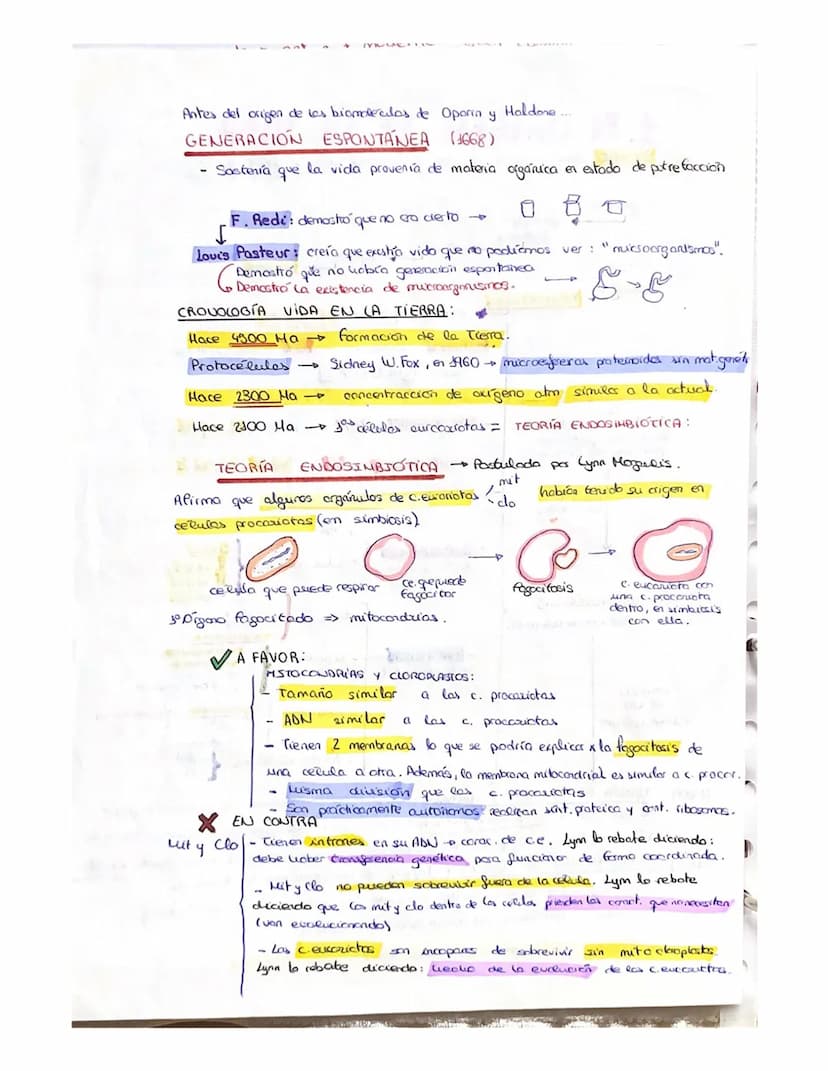 Antes del origen de las biomoléculas de Oparin y Haldane...
GENERACIÓN ESPONTÁNEA (1668)
- Sostenía que la vida provenía de materia orgánica en estado de putrefacción
F. Redi: demostró que no era cierto →
Louis Pasteur: creía que existía vida que no podíamos ver: "microorganismos".
Demostró que no había generación espontánea
Demostró la existencia de microorganismos.
CRONOLOGÍA VIDA EN LA TIERRA:
Hace 4500 Ma → formación de la Tierra.
Protocélulas → Sidney W. Fox, en 1960 → microesferas proteinoides sin mat. genét
Hace 2300 Ma → concentraccion de oxígeno atm similar a la actual.
Hace 2100 Ma → 1ªs células eurcariotas = TEORÍA ENDOSIMBIÓTICA:
TEORÍA ENDOSIMBIÓTICA → Postulada por Lynn Margulis.
Afirma que algunos orgánulos de c. eucariotas mit clo había tenido su origen en
células procariotas (en simbiosis)
celula que puede respirar
ce. que puede fagocitar
fagocitosis
c. eucariota con
una c. procariota
dentro, en simbiosis
con ella.
fagocitado => mitocondrias.
✓ A FAVOR:
MITOCONDRIAS Y CLOROPLASTOS:
- Tamaño similar a las c. procariotas
- ADN similar a las c. procariotas
- Tienen 2 membranas lo que se podría explicar x la fagocitosis de
una celula a otra. Además, la membrana mitocondrial es similar a c. procar.
- Misma división que las c. procariotas
- Son prácticamente autónomos: realizan sínt. proteica y cont. ribosomas.
X EN CONTRA
Mit y Clo - Tienen intrones en su ADN → carac. de c.e. Lynn lo rebate diciendo:
debe haber transferencia genética para funcionar de forma coordinada.
- Mit y clo no pueden sobrevivir fuera de la célula. Lynn lo rebate
diciendo que las mit y clo dentro de las celulas pierden las caract. que no necesitan
(van evolucionando)
- Las c. eucariotas son incapaces de sobrevivir sin mit o cloroplasto.
Lynn lo rebate diciendo: hecho de la evolución de las c. eucariotas.